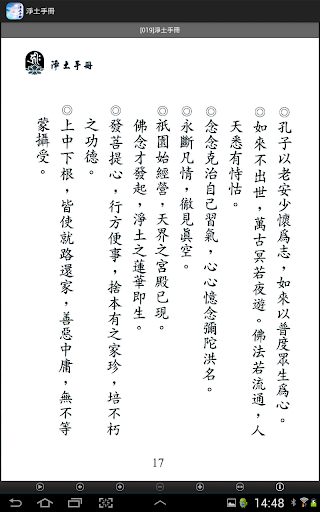 淨土手冊
[019]淨土手冊
淨土手冊
◎孔子以老安少懷爲志，如來以普度眾生爲心。
◎如來不出世，萬古冥若夜遊。佛法若流通，人
天悉有恃怙。
◎念念克治自己習氣，心心憶念彌陀洪名。
◎永斷凡情，徹見眞空。
◎祇園始經營，天界之宮殿已現。
佛念才發起，淨土之蓮華即生。
◎發菩提心，行方便事，捨本有之家珍，培不朽
之功德。
◎上中下根，皆使就路還家，善惡中庸，無不等
蒙攝受。
17
14:48